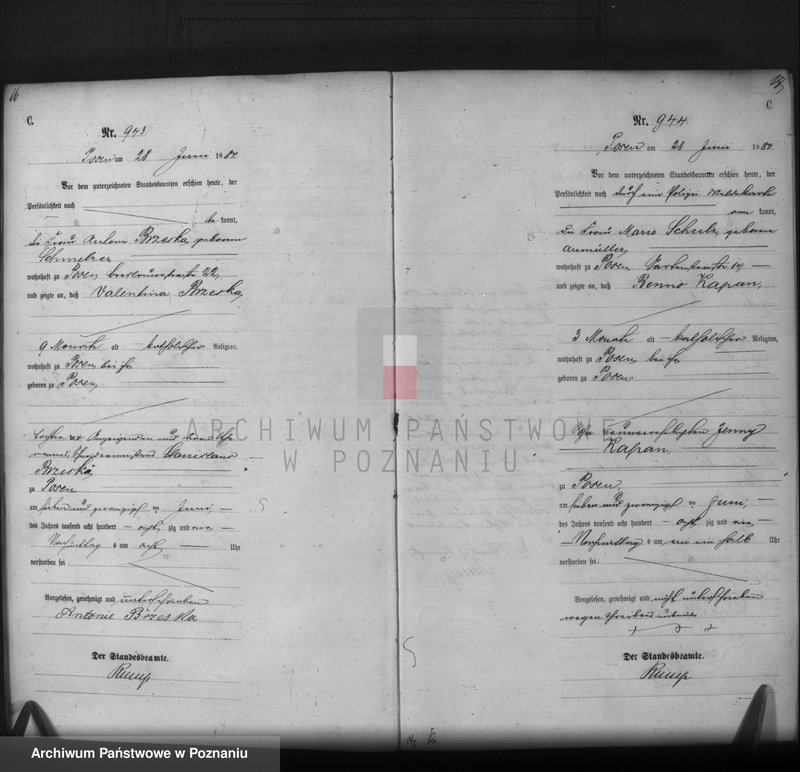 16
C.
Nr. 943
Posen am 28 Juni 1884
Vor dem unterzeichneten Standesbeamten erschien heute, der
Persönlichkeit nach
be kannt,
die Frau Antonie Brzeska, geborene
Schmelzer
wohnhaft zu Posen, Breslauerstraße 22,
und zeigte an, daß Valentina Brzeska,
9 Monate alt katholischer Religion,
wohnhaft zu Posen bei ihr
geboren zu Posen,
Tochter der Anzeigenden und deren
Stanislaus
Brzeski,
zu Posen
am sieben und zwanzigsten Juni,
des Jahres tausend acht hundert acht zig und vier
Nachmittag s um acht Uhr
verstorben sei
Vorgelesen, genehmigt und unterschrieben
Antonie Brzeska
Der Standesbeamte.
C.
Nr. 944
Posen am 28 Juni 1884
Vor dem unterzeichneten Standesbeamten erschien heute, der
Persönlichkeit nach durch eine Polizei Meldekarte
kannt,
die Frau Marie Schulz, geborene
wohnhaft zu Posen, Gartenstraße
und zeigte an, daß Benno Kapan,
3 Monate alt katholischer Religion,
wohnhaft zu Posen bei ihr
geboren zu Posen
Sohn der unverehelichten Jenny
Kapan,
zu Posen,
am sieben und zwanzigsten Juni,
des Jahres tausend acht hundert acht zig und vier
Nachmittag s um ein halb Uhr
verstorben sei:
Vorgelesen, genehmigt und nicht unterschrieben
wegen Schreibens
Der Standesbeamte.
ARCHIWUM PAŃSTWOWE
W POZNANIU
Archiwum Państwowe w Poznaniu